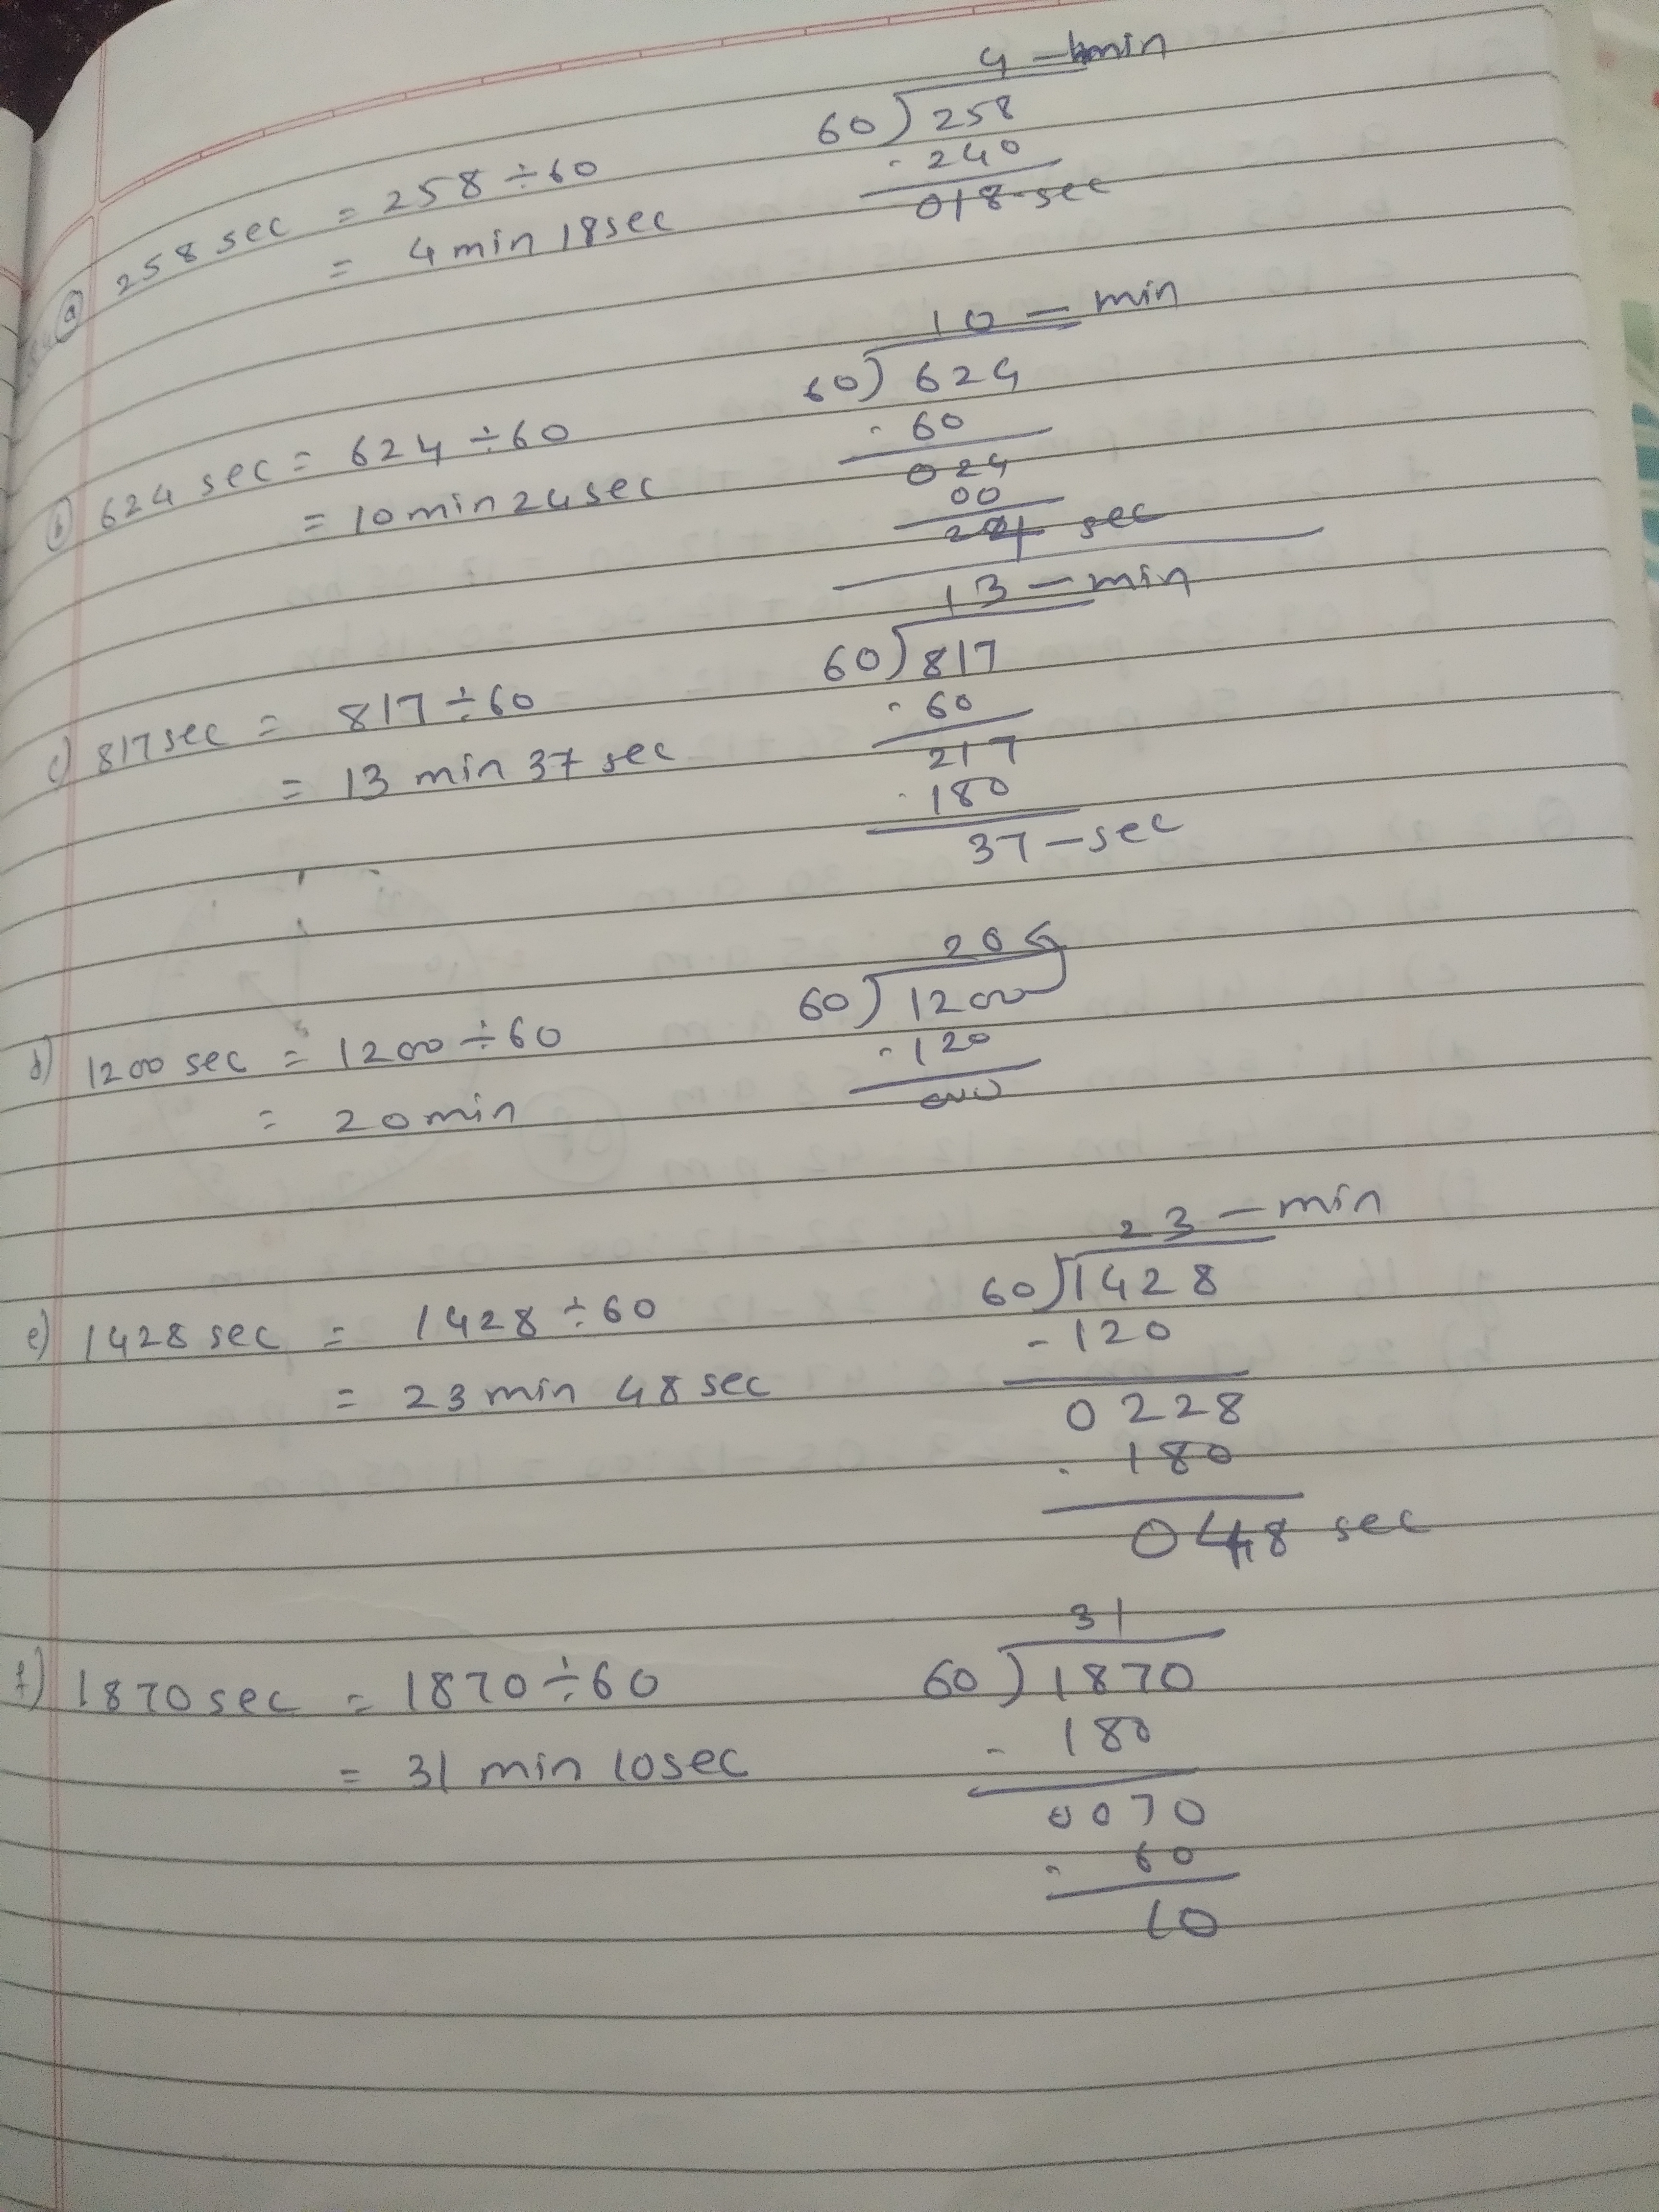 4 - min
60) 258
- 240
018-sec
a) 258 sec = 258 ÷ 60
= 4 min 18 sec
10 - min
60) 624
- 60
024
00
24 sec
b) 624 sec = 624 ÷ 60
= 10 min 24 sec
13 - min
60) 817
- 60
217
- 180
37 - sec
c) 817 sec = 817 ÷ 60
= 13 min 37 sec
20
60) 1200
- 120
000
d) 1200 sec = 1200 ÷ 60
= 20 min
23 - min
60) 1428
- 120
0228
- 180
048 sec
e) 1428 sec = 1428 ÷ 60
= 23 min 48 sec
31
60) 1870
- 180
0070
- 60
10
f) 1870 sec = 1870 ÷ 60
= 31 min 10 sec